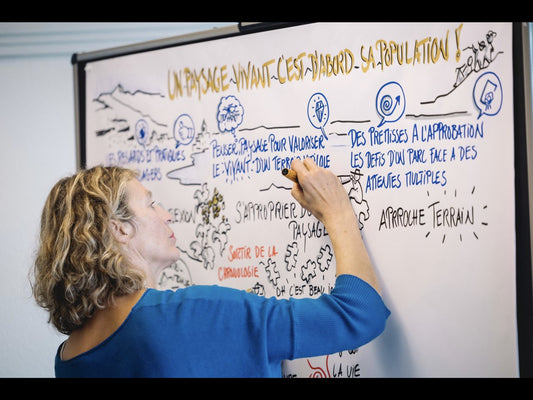 UN PAYSAGE VIVANT C'EST D'ABORD SA POPULATION !
LES REGARDS ET PRATIQUES
PENSER PAYSAGE POUR VALORISER
LE VIVANT D'UN
DES PRÉMISSES À L'APPROBATION
LES DÉFIS D'UN PARC FACE À DES
ATTENTES MULTIPLES
S'APPROPRIER
PAYSAGE
APPROCHE TERRAIN
SORTIR DE LA
CHRONOLOGIE
OH C'EST BEAU
LA VIE